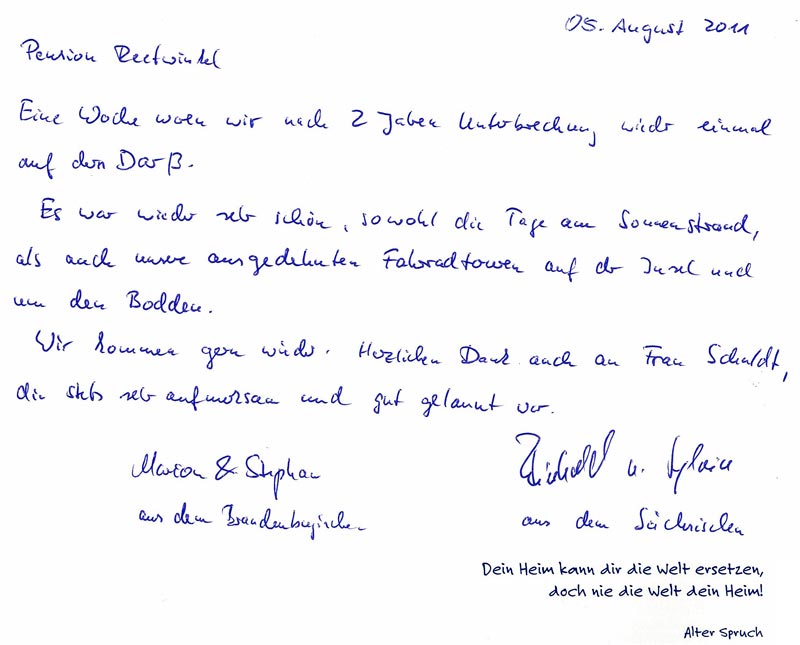 05. August 2011
Pension Reetwinkel
Eine Woche waren wir nach 2 Jahren Unterbrechung wieder einmal
auf dem Darß.
Es war wieder sehr schön, sowohl die Tage am Sonnenstrand,
als auch unsere ausgedehnten Fahrradtouren auf der Insel und
um den Bodden.
Wir kommen gern wieder. Herzlichen Dank auch an Frau
die stets sehr aufmerksam und gut gelaunt war.
Marion & Stephan
aus dem Brandenburgischen
u. Sylvia
aus dem Sächsischen
Dein Heim kann dir die Welt ersetzen,
doch nie die Welt dein Heim!
Alter Spruch